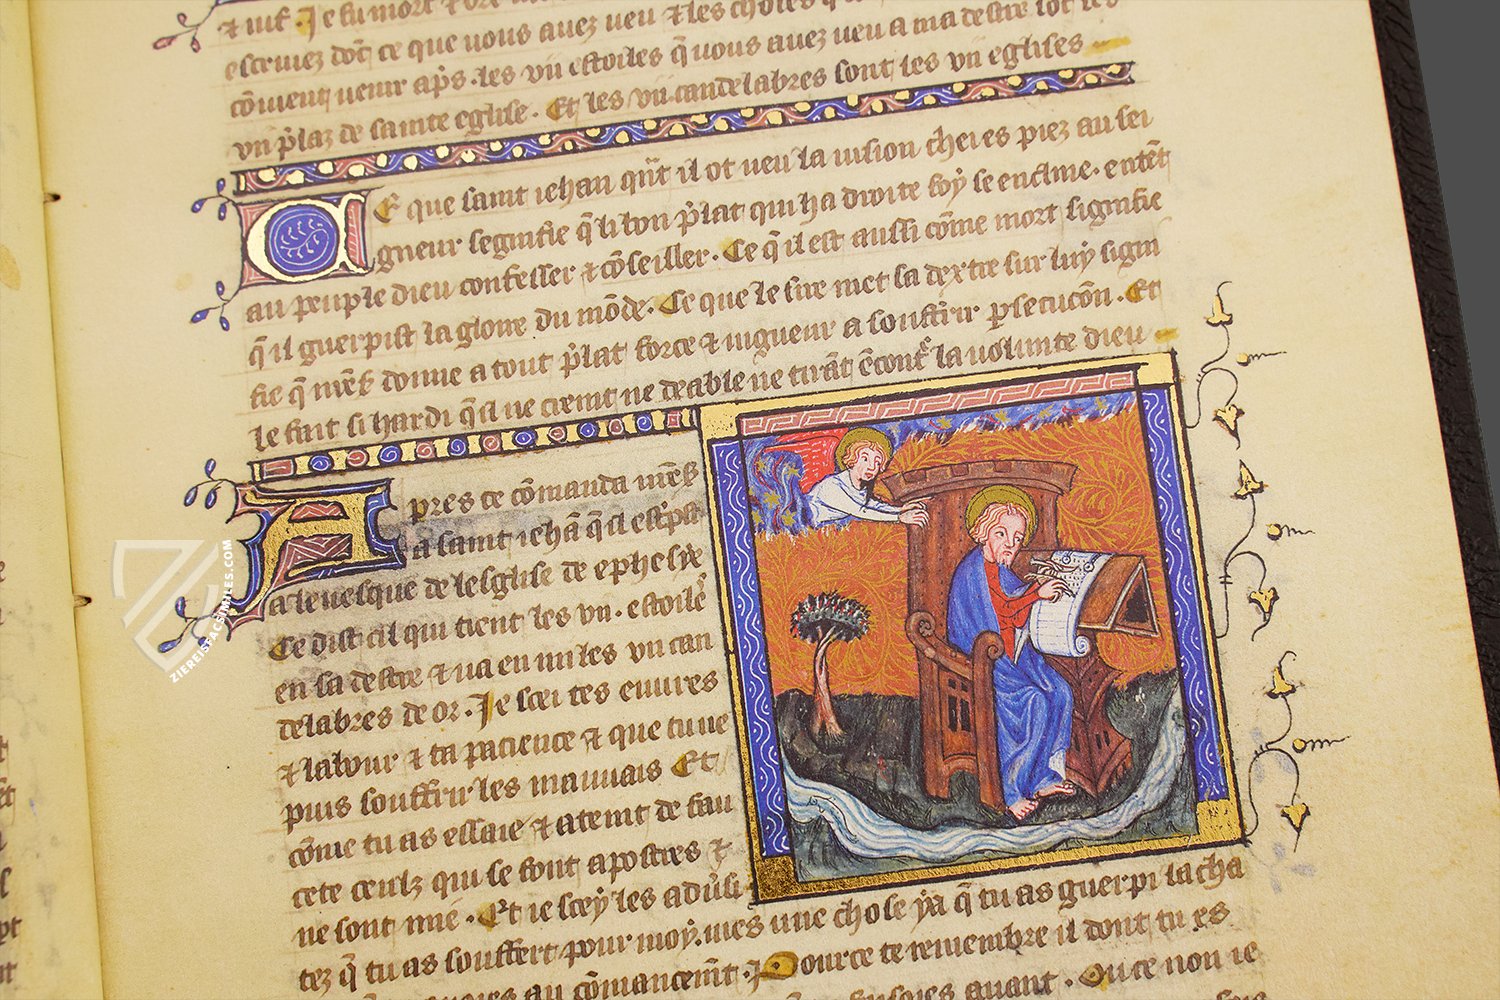 escriuez dōc ce que vous auez ueu et les choses q̄
cōuient uenir ap̄s. les vii estoiles q̄ vous auez ueu a ma destre sont les
vii p̄laz de sainte eglise. Et les vii candelabres sont les vii eglises
CE que saint iehan qn̄t il ot ueu la uision cheï es piez au sei
gneur segnifie q̄ li bon p̄lat qui ha droite foy se encline. entēt
au peuple dieu confesser ⁊ cōseiller. Ce q̄ il est aussi cōme mort signifie
q̄ il guerpist la gloire du mōde. Ce que le sire met sa dextre sur luy signi
fie q̄ donne a tout p̄lat force ⁊ uigueur a souffrir p̱secucōn. Et
le fait si hardi q̄ il ne crient ne deable ne tirāt ēcont̄ la uolunte dieu
Apres ce cōmanda
a saint iehā q̄ il
a leuesque de lesglise de ephesye
Ce dist cil qui tient les vii. estoiles
en sa destre ⁊ ua en mi les vii can
delabres de or. Je scei tes euures
⁊ labour ⁊ ta pacience ⁊ que tu ne
puis souffrir les mauuais Et
cōme tu as essaie ⁊ ateint de fau
cete ceulz qui se font apostres ⁊
ne sont mie. Et ie scey les
tez q̄ tu as souffert pour moy. mes une chose ya q̄ tu as guerpi la cha
au cōmancem̄t. Pource te remembre il dont tu es
auant. Ou ce non ie
ZIEREISFACSIMILES.COM